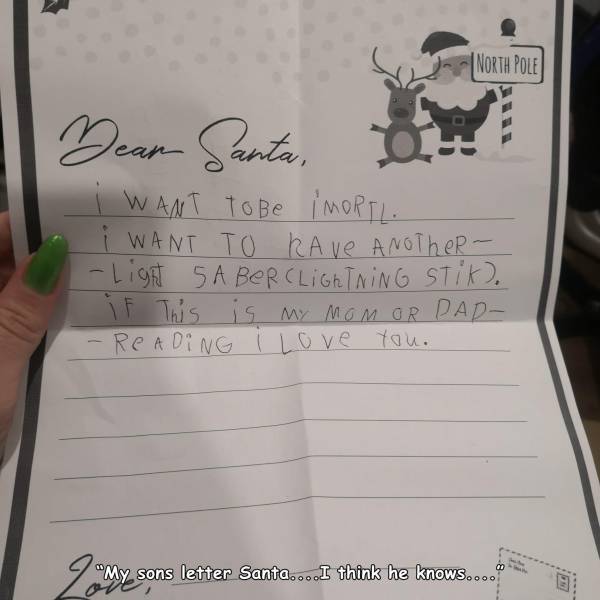 NORTH POLE
Dear Santa,
i WANT TOBE iMORTL.
i WANT TO hAve ANOTheR-
-Light SABeR (LighTNiNG STiK).
iF This is MY MOM OR DAD-
- ReADiNG i LOve You.
Love,
"My sons letter Santa....I think he knows...."